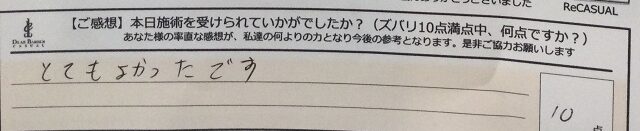 ございました
ReCASUAL
DEAR BARBER
CASUAL
【ご感想】本日施術を受けられていかがでしたか?(ズバリ10点満点中、何点ですか?)
あなた様の率直な感想が、私達の何よりの力となり今後の参考となります。是非ご協力お願いします
とてもよかったです
10
点